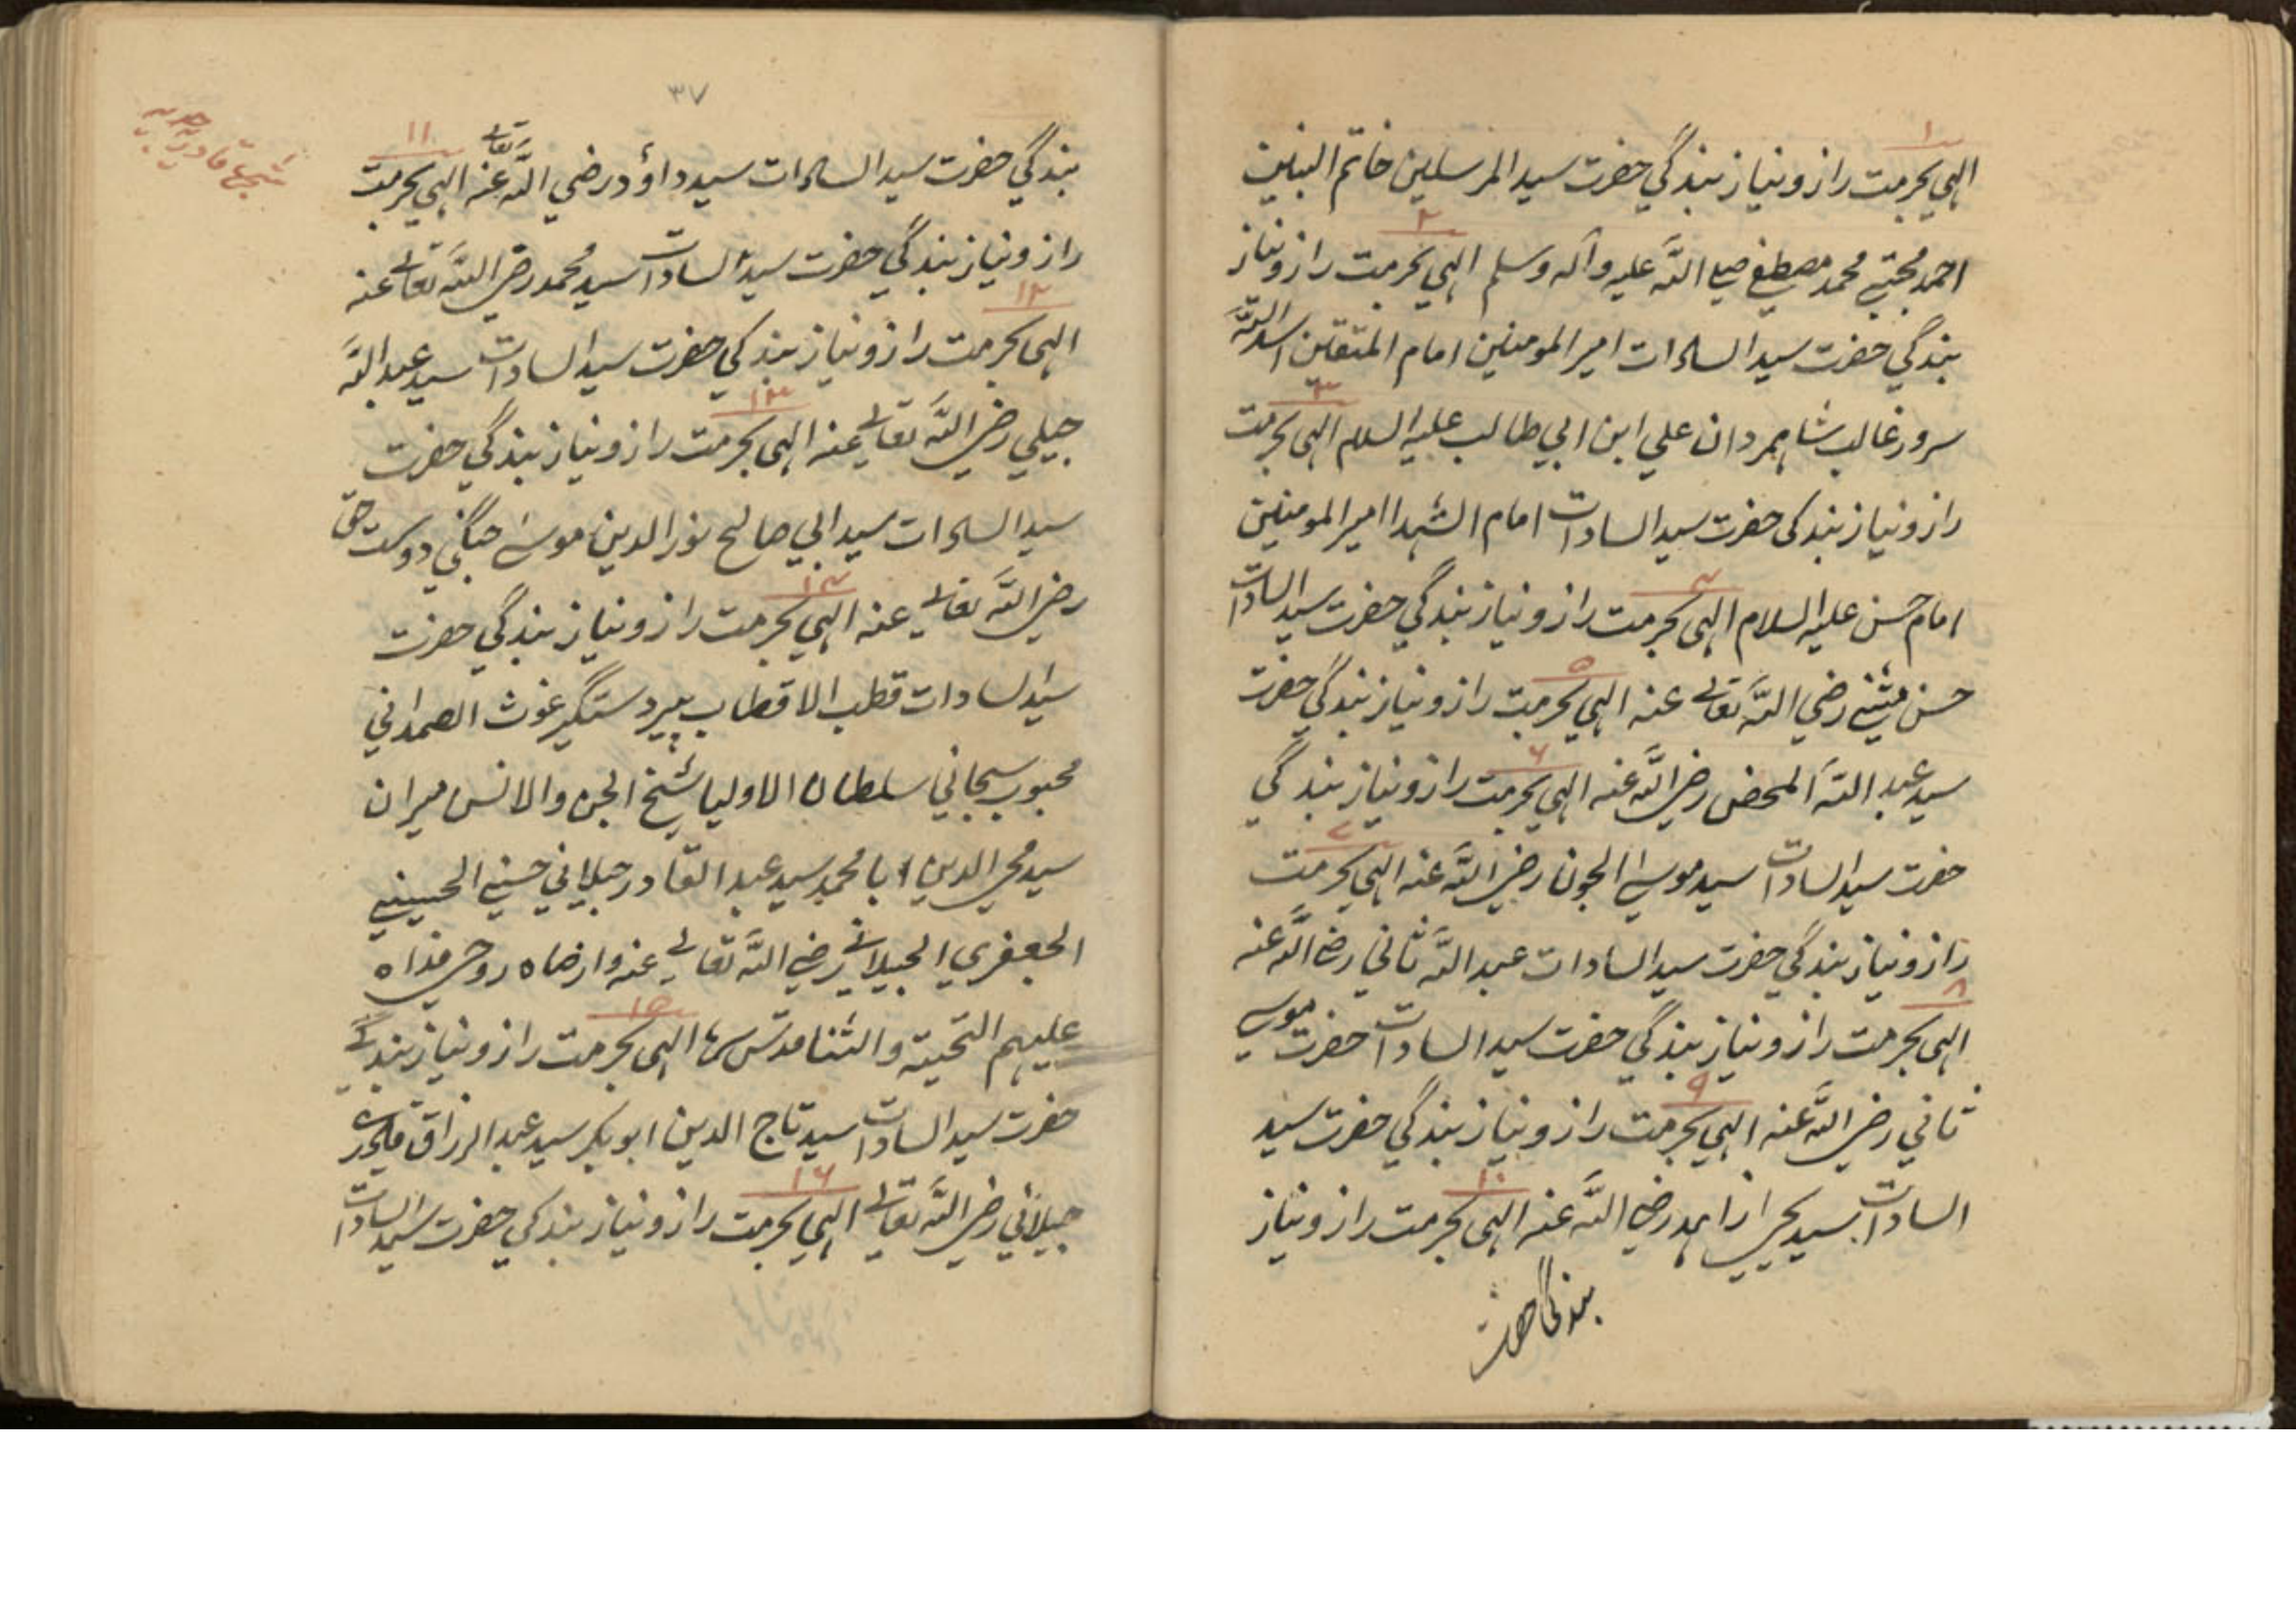 ۱
الهي بحرمت راز و نياز بندگي حضرت سيد المرسلين خاتم النبين
۲
احمد مجتبے محمد مصطفے صلے اللہ عليہ وآلہ وسلم الهي بحرمت راز و نياز
بندگي حضرت سيد السادات امير المومنين امام المتقين اسد اللہ
۳
سرور غالب شاہمردان علي ابن ابي طالب عليہ السلام الهي بحرمت
راز و نياز بندگی حضرت سيد السادات امام الشہدا امير المومنين
۴
امام حسن عليہ السلام الهي بحرمت راز و نياز بندگي حضرت سيد السادات
۵
حسن مثنے رضي اللہ تعالے عنہ الهي بحرمت راز و نياز بندگي حضرت
۶
سيد عبد اللہ المحض رضي اللہ عنہ الهي بحرمت راز و نياز بندگي
۷
حضرت سيد السادات سيد موسے الجون رضي اللہ عنہ الهي بحرمت
راز و نياز بندگي حضرت سيد السادات عبد اللہ ثاني رضي اللہ عنہ
۸
الهي بحرمت راز و نياز بندگي حضرت سيد السادات حضرت موسے
۹
ثاني رضي اللہ عنہ الهي بحرمت راز و نياز بندگي حضرت سيد
۱۰
السادات سيد يحيے زاہد رضي اللہ عنہ الهي بحرمت راز و نياز
بندگی حضرت
۳۷
۱۱
بندگي حضرت سيد السادات سيد داؤد رضي اللہ تعالے عنہ الهي بحرمت
راز و نياز بندگي حضرت سيد السادات سيد محمد رضي اللہ تعالے عنہ
۱۲
الهي بحرمت راز و نياز بندگي حضرت سيد السادات سيد عبد اللہ
۱۳
جيلي رضي اللہ تعالے عنہ الهي بحرمت راز و نياز بندگي حضرت
سيد السادات سيد ابي صالح نور الدين موسے جنگي دوست حق
۱۴
رضي اللہ تعالے عنہ الهي بحرمت راز و نياز بندگي حضرت
سيد السادات قطب الاقطاب پير دستگير غوث الصمداني
محبوب سبحاني سلطان الاوليا شيخ الجن والانس ميران
سيد محي الدين ابا محمد سيد عبد القادر جيلاني حسنے الحسينے
الجعفري الجيلانے رضي اللہ تعالے عنہ وارضاہ روحي فداہ
۱۵
عليہم التحيتہ والثنا قدس سرہ الهي بحرمت راز و نياز بندگے
حضرت سيد السادات سيد تاج الدين ابو بكر سيد عبد الرزاق
۱۶
جيلاني رضي اللہ تعالے الهي بحرمت راز و نياز بندگي حضرت سيد السادات